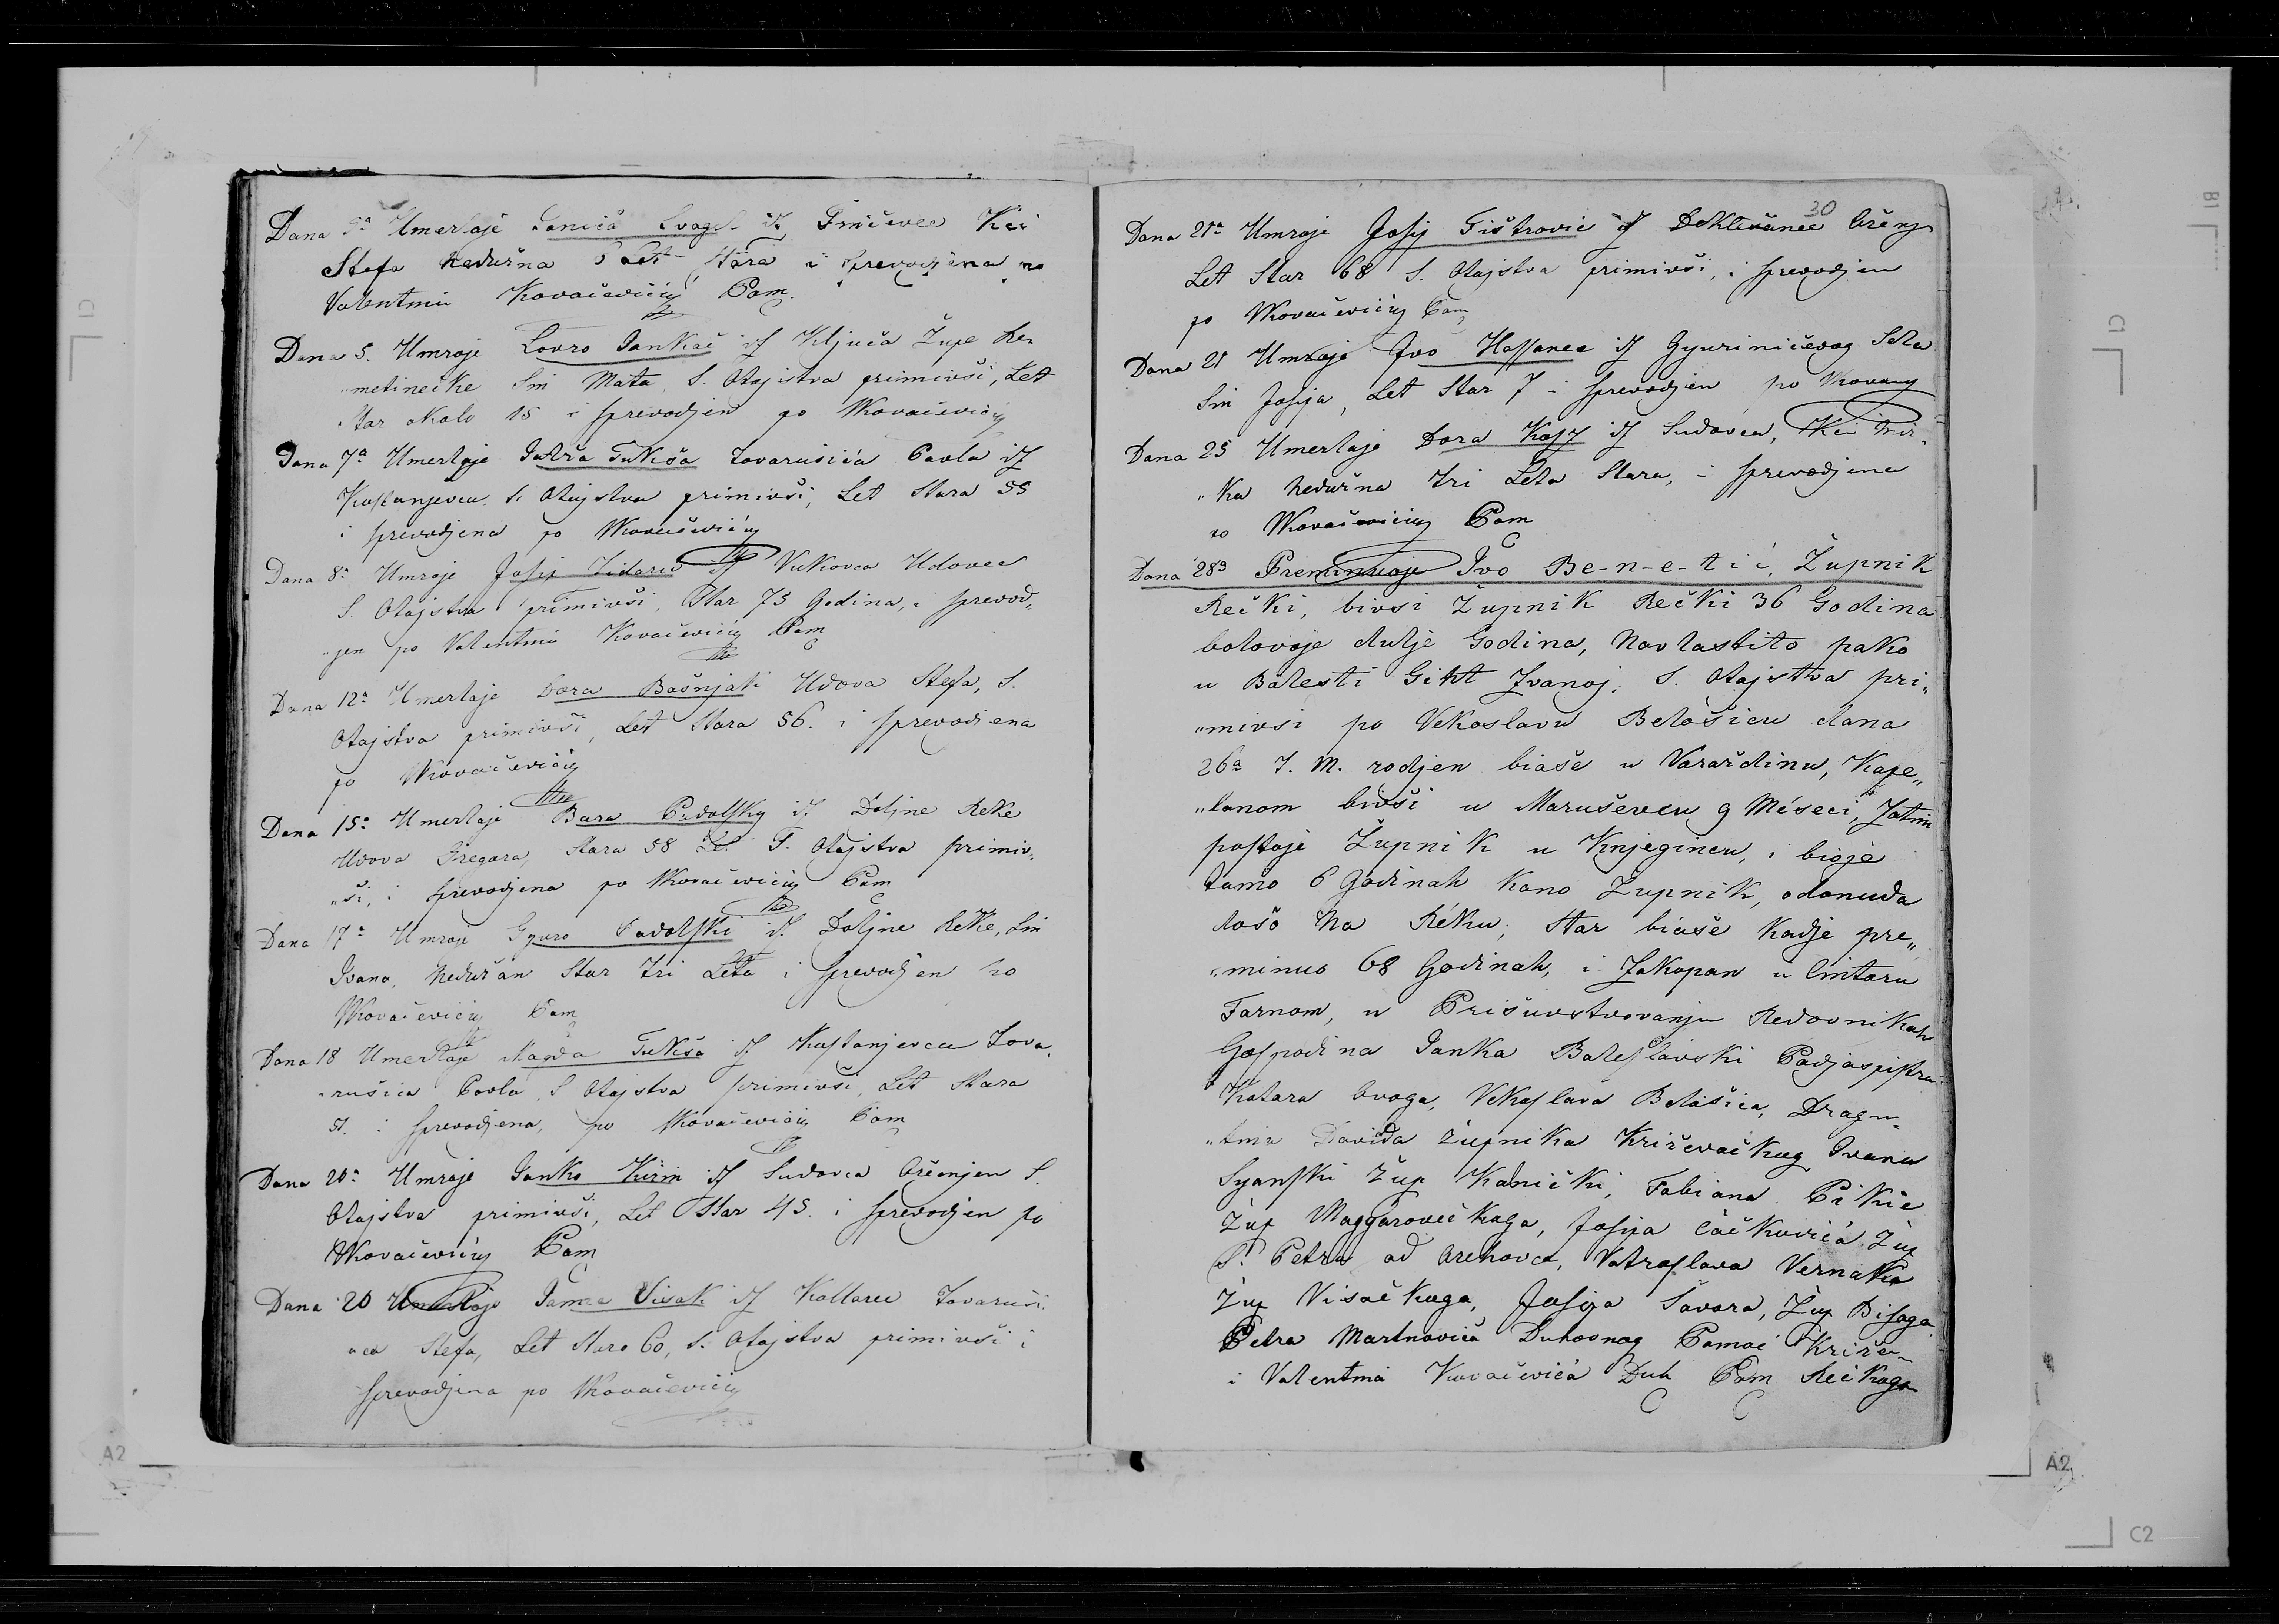 Dana 5a Umerlaje Janica Svagel iz Finčevec Kći
Stefa nedužna Let stara i sprevodjena po
Valentinu Kovačeviću Pom.
Dana 5. Umroje Lovro Jankač iz Ključa Župe Re„
„metinečke Sin Mata, S. Otajstva primivši, Let
star okolo 15 i sprevodjen po VKovačeviću
Dana 7a Umerlaje Tukša tovarušića Pavla iz
Kostanjevca S. Otajstva primivši, Let stara 55
i sprevodjena po VKovačeviću
Dana 8a Umroje Josip Zidarić iz Vukovca Udovec
S. Otajstva primivši, star 75 Godina, i sprevod„
„jen po Valentinu Kovačeviću Pom
Dana 12a Umerlaje Dora Bašnjak Udova Stefa, S.
Otajstva primivši, Let stara 56. i sprevodjena
po VKovačeviću
Dana 15a Umerlaje Bara Padolsky iz Doljne Reke
Udova Gregora, stara 58 Let S. Otajstva primiv„
„ši, i sprevodjena po VKovačeviću Pom
Dana 17a Umroje Gyuro Padolski iz Doljne Reke, Sin
Ivana, nedužan star tri Leta i sprevodjen po
VKovačeviću Pom
Dana 18 Umerlaje Magda Tukša iz Kostanjevca tova„
„rušica Pavla, S Otajstva primivši, Let stara
51. i sprevodjena, po VKovačeviću Pom
Dana 20a Umroje Janko Kurin iz Sudovca Oženjen S.
Otajstva primivši, Let star 45. i sprevodjen po
VKovačeviću Pom
Dana 20 Umerlaje Visak iz Kottarec tovaruši„
„ca Stefa, Let stara 60, S. Otajstva primivši i
sprevodjena po VKovačeviću
30
Dana 21a Umroje Josip Fištrović iz Oženj
Let star 68 S. Otajstva primivši, i sprevodjen
po VKovačeviću Pom
Dana 21 Umroje Ivo Hassanec iz Gyuriničevog Sela
Sin Josipa, Let star 7 i sprevodjen po VKovany
Dana 25 Umerlaje Dora iz Sudovca, Kći Mir„
„ka nedužna tri Leta stara, i sprevodjena
po VKovačeviću Pom
Dana 28a Preminuoje Ivo Be-n-e-t-i-ć, Župnik
Rečki, bivsi Župnik Rečki 36 Godina
bolovaje dulje Godina, navlastito pako
u Bolesti Giht zvanoj; S. Otajstva pri„
„mivsi po Vekoslavu Belošicu dana
26a T. M. rodjen biaše u Varaždinu, Kape„
„lanom bivši u Maruševcu 9 Miseci, Zatim
postaje Župnik u Knjegincu, i bioje
tamo 6 Godinah kano Župnik, odonuda
došo na Réku; star biaše kadje pre„
„minuo 68 Godinah, i zakopan u Cintoru
Farnom, u Prisuvstvovanju Redovnikah
Gospodina Janka Boleslavski Podjaspistra
Kotara Ovoga, Vekoslava Belošica, Dragu„
„tina Davida župnika Križevačkog Ivana
Syanski Žup Kalnički, Fabiana Pikie
Žup Maggarovečkoga, Josipa Čačkovića Žup
S. Petra od Orehovca, Vatroslava Vernaka
Žup Visačkoga, Josipa Šavora, Žup Bisaga
Petra Martnovića Duhovnog Pomoć Križe„
i Valentina Kovačevića Duh Pom Rečkoga
A2
A2
C1
C1
B1
C2